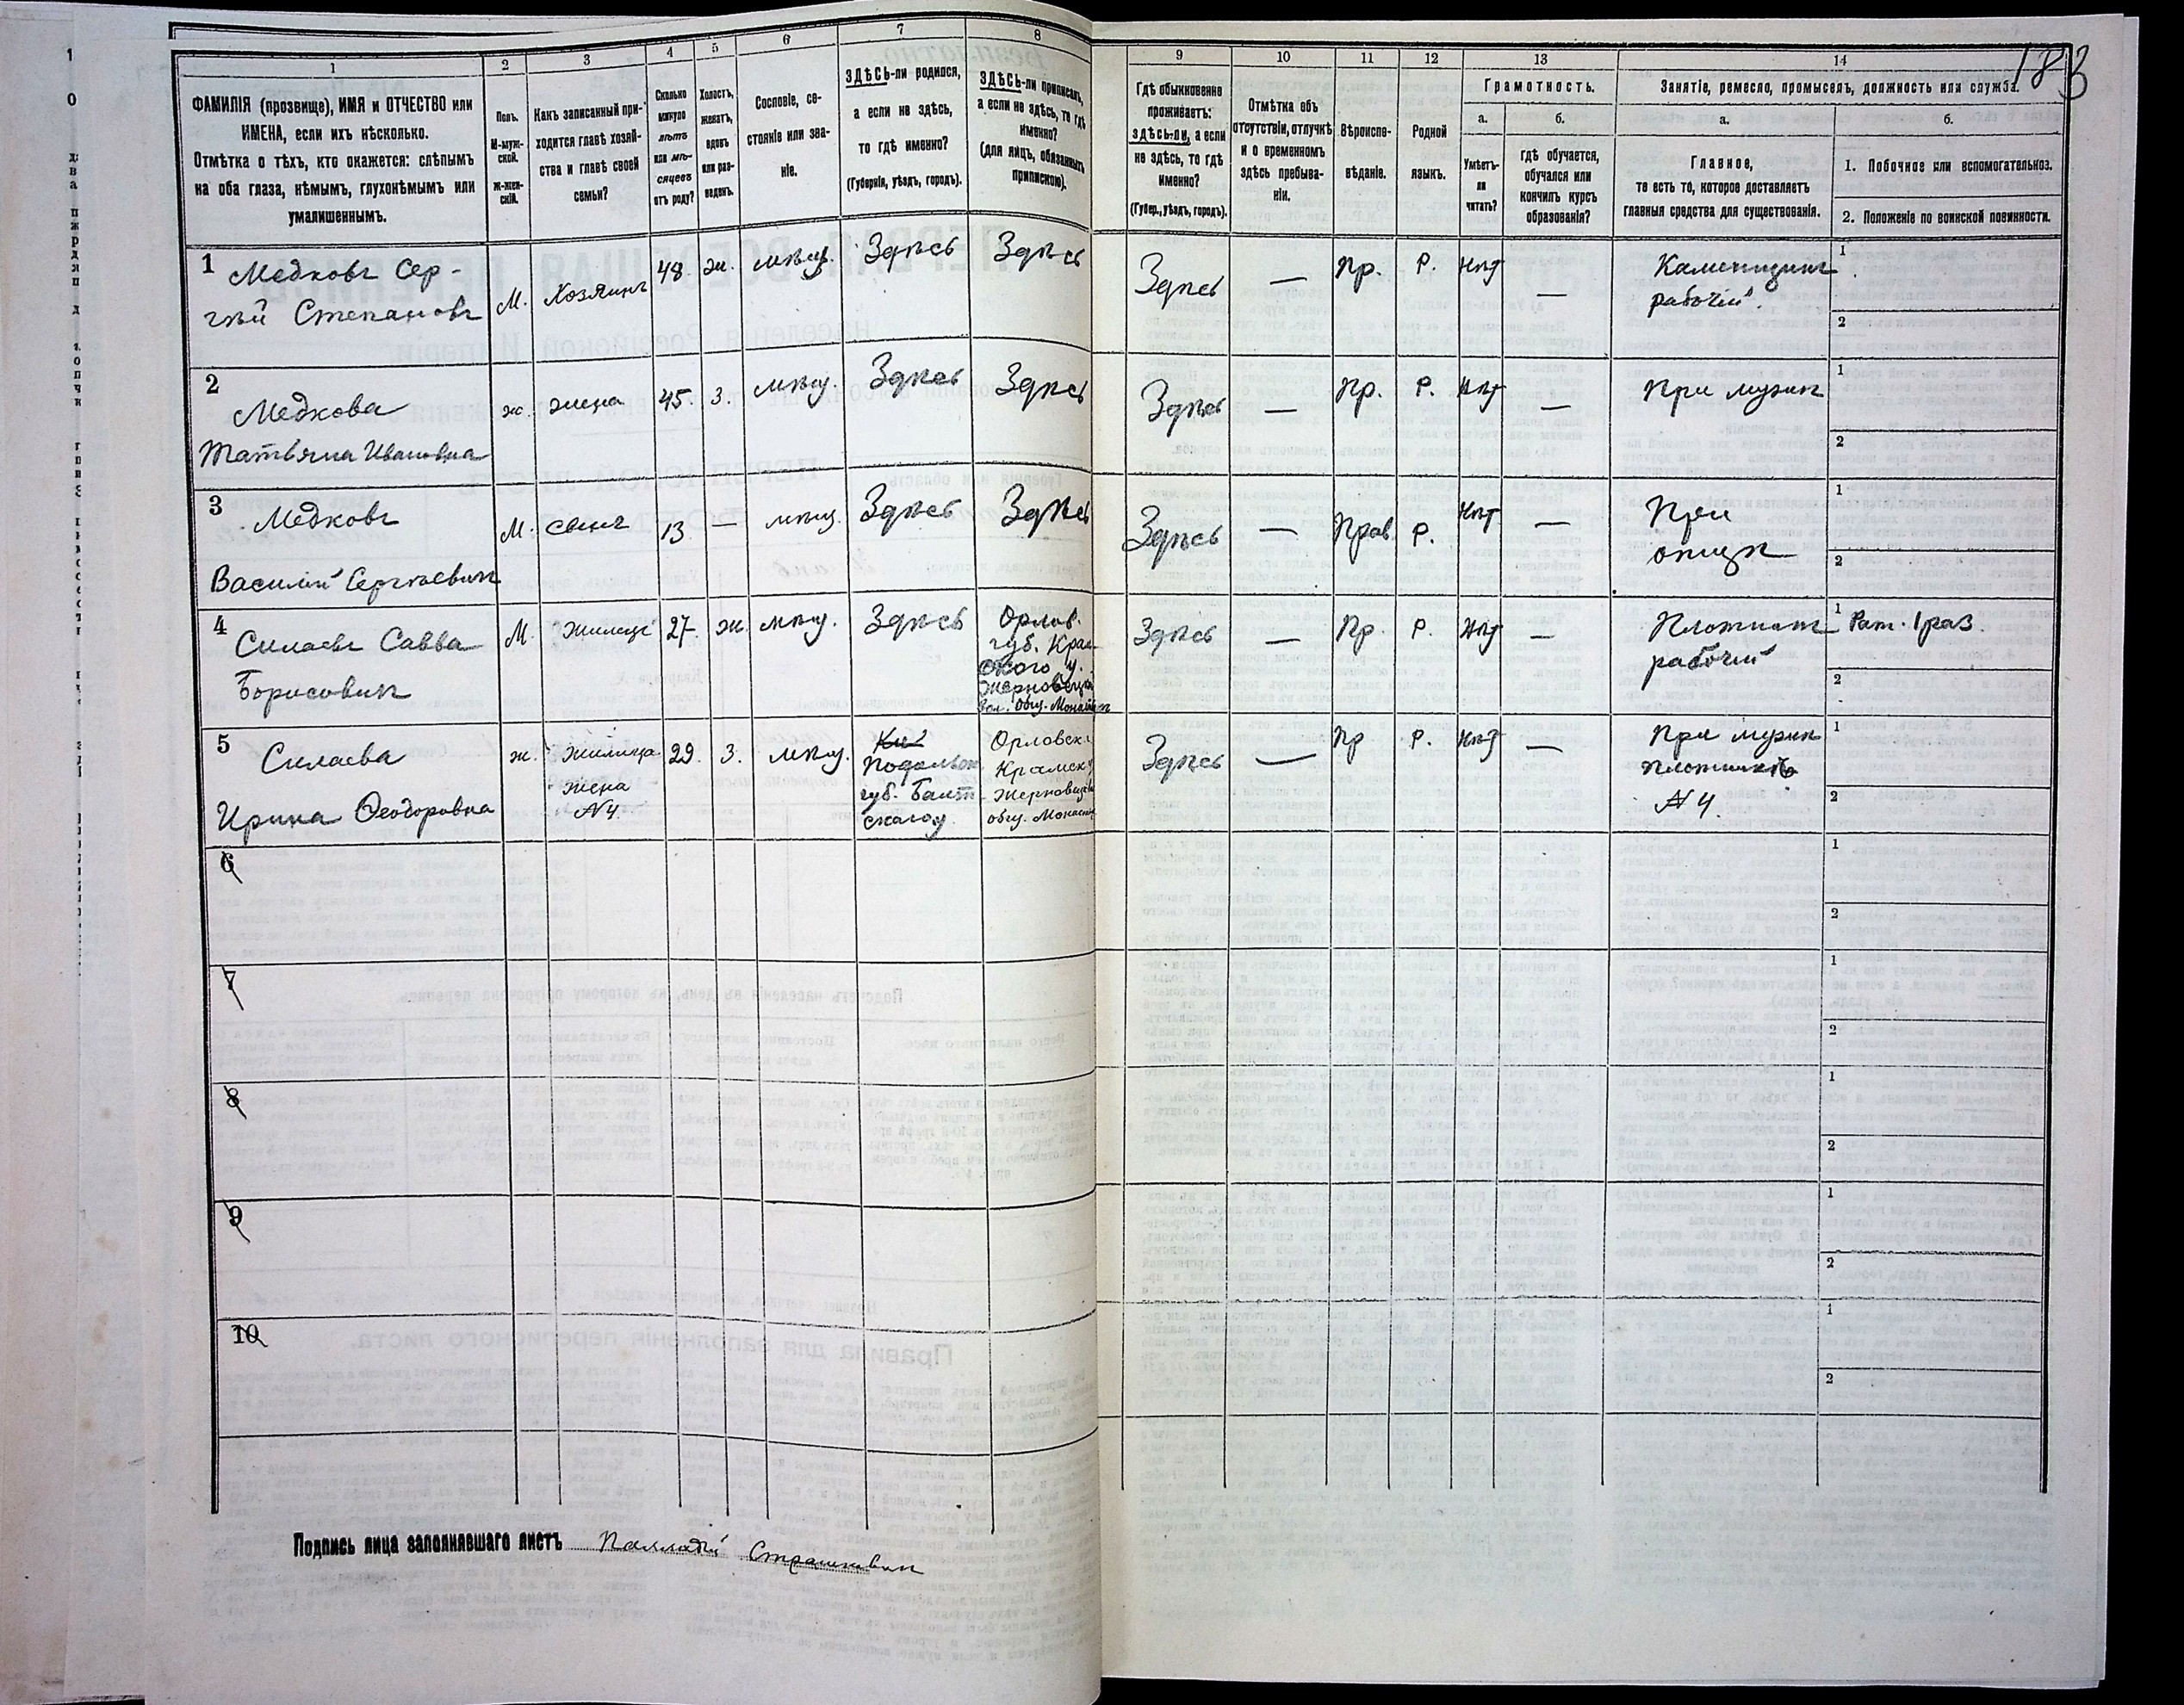 183
1
2
3
4
5
6
7
8
9
10
11
12
13
14
ФАМИЛІЯ (прозвище), ИМЯ и ОТЧЕСТВО или
ИМЕНА, если ихъ нѣсколько.
Отмѣтка о тѣхъ, кто окажется: слѣпымъ
на оба глаза, нѣмымъ, глухонѣмымъ или
умалишеннымъ.
Полъ.
М-муж-
ской.
Ж-жен-
скій.
Какъ записанный при-
ходится главѣ хозяй-
ства и главѣ своей
семьи?
Сколько
минуло
лѣтъ
или мѣ-
сяцевъ
отъ роду?
Холостъ,
женатъ,
вдовъ
или раз-
веденъ.
Сословіе, со-
стояніе или зва-
ніе.
ЗДѢСЬ-ли родился,
а если не здѣсь,
то гдѣ именно?
(Губернія, уѣздъ, городъ).
ЗДѢСЬ-ли приписанъ,
а если не здѣсь, то гдѣ
именно?
(для лицъ, обязанныхъ
припискою).
Гдѣ обыкновенно
проживаетъ:
здѣсь-ли, а если
не здѣсь, то гдѣ
именно?
(Губер., уѣздъ, городъ).
Отмѣтка объ
отсутствіи, отлучкѣ
и о временномъ
здѣсь пребыва-
ніи.
Вѣроиспо-
вѣданіе.
Родной
языкъ.
Грамотность.
а.
Умѣетъ-
ли
читать?
б.
гдѣ обучается,
обучался или
кончилъ курсъ
образованія?
Занятіе, ремесло, промыселъ, должность или служба.
а.
Главное,
то есть то, которое доставляетъ
главныя средства для существованія.
б.
1. Побочное или вспомогательное.
2. Положеніе по воинской повинности.
1 Медковъ Сер-
гѣй Степановъ
М. Хозяинъ 48 ж. мѣщ. Здѣсь Здѣсь
Здѣсь — Пр. Р. Нѣт —
Каменщикъ
рабочій.
1
2
2 Медкова
Татьяна Ивановна
ж. жена 45. З. мѣщ. Здѣсь Здѣсь
Здѣсь — Пр. Р. Нѣт — При мужѣ
1
2
3 Медковъ
Василій Сергѣевич
М. сынъ 13 — мѣщ. Здѣсь Здѣсь
Здѣсь — Прав. Р. Нѣт —
При
отцѣ
1
2
4 Силаевъ Савва
Борисовичъ
М. Жилецъ 27. Ж. мѣщ. Здѣсь
Орлов.
губ.
ского у.
Здѣсь — Пр. Р. Нѣт —
Плотникъ
рабочій
1 Рат. 1 раз.
2
5 Силаева
Ирина Ѳеодоровна
ж.
Жилица
жена
№4.
29. З. мѣщ.
Подольск.
губ. Балт.
скаго у.
Орловск.
Здѣсь — Пр Р. Нѣт —
При мужѣ
плотникѣ
№ 4.
1
2
6
1
2
7
1
2
8
1
2
9
1
2
10
1
2
Подпись лица заполнявшаго листъ Палладій Страшкевич